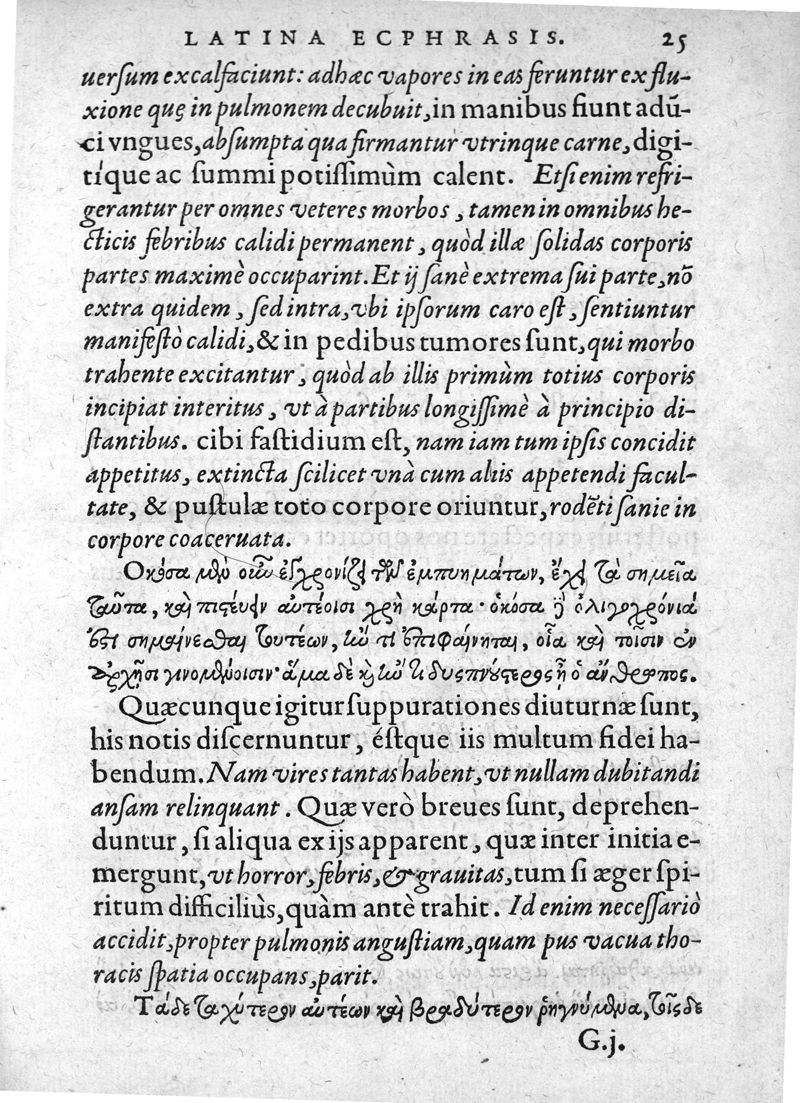 LATINA ECPHRASIS. 25
uersum excalfaciunt: adhæc vapores in eas feruntur ex flu-
xione quę in pulmonem decubuit, in manibus fiunt adũ-
ci vngues, absumpta qua firmantur vtrinque carne, digi-
tíque ac summi potissimùm calent. Etsi enim refri-
gerantur per omnes veteres morbos, tamen in omnibus he-
cticis febribus calidi permanent, quòd illæ solidas corporis
partes maximè occuparint. Et ij sanè extrema sui parte, nõ
extra quidem, sed intra, vbi ipsorum caro est, sentiuntur
manifestò calidi, & in pedibus tumores sunt, qui morbo
trahente excitantur, quòd ab illis primùm totius corporis
incipiat interitus, vt à partibus longissimè à principio di-
stantibus. cibi fastidium est, nam iam tum ipsis concidit
appetitus, extincta scilicet vnà cum aliis appetendi facul-
tate, & pustulæ toto corpore oriuntur, rodẽti sanie in
corpore coaceruata.
Ὁκόσα μὲν οὖν ἐγχρονίζει τῶν ἐμπυημάτων, ἔχει τὰ σημεῖα
ταῦτα, καὶ πιστεύειν αὐτέοισι χρὴ κάρτα· ὁκόσα δὲ ὀλιγοχρόνιά
ἐστι σημαίνεσθαι τουτέων, ἤν τι ἐπιφαίνηται, οἷα καὶ τοῖσιν ἐν
ἀρχῇσι γινομένοισιν· ἅμα δὲ καὶ ἤν τι δυσπνούστερος ᾖ ὁ ἄνθρωπος.
Quæcunque igitur suppurationes diuturnæ sunt,
his notis discernuntur, éstque iis multum fidei ha-
bendum. Nam vires tantas habent, vt nullam dubitandi
ansam relinquant. Quæ verò breues sunt, deprehen-
duntur, si aliqua ex ijs apparent, quæ inter initia e-
mergunt, vt horror, febris, & grauitas, tum si æger spi-
ritum difficiliùs, quàm antè trahit. Id enim necessariò
accidit, propter pulmonis angustiam, quam pus vacua tho-
racis spatia occupans, parit.
Τάδε ταχύτερον αὐτέων καὶ βραδύτερον ῥηγνύμενα, τοῖς δε
G.j.